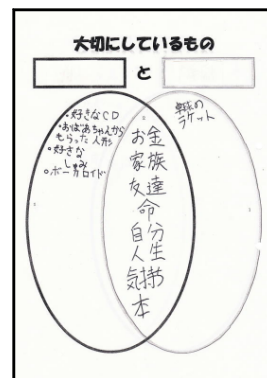 大切にしているもの
と
・好きなCD
・おばあちゃんから
もらった人形
・好きな
しゅみ
・ボーカロイド
お金
家族
友達
命
自分
人生
気持
本
卓球の
ラケット